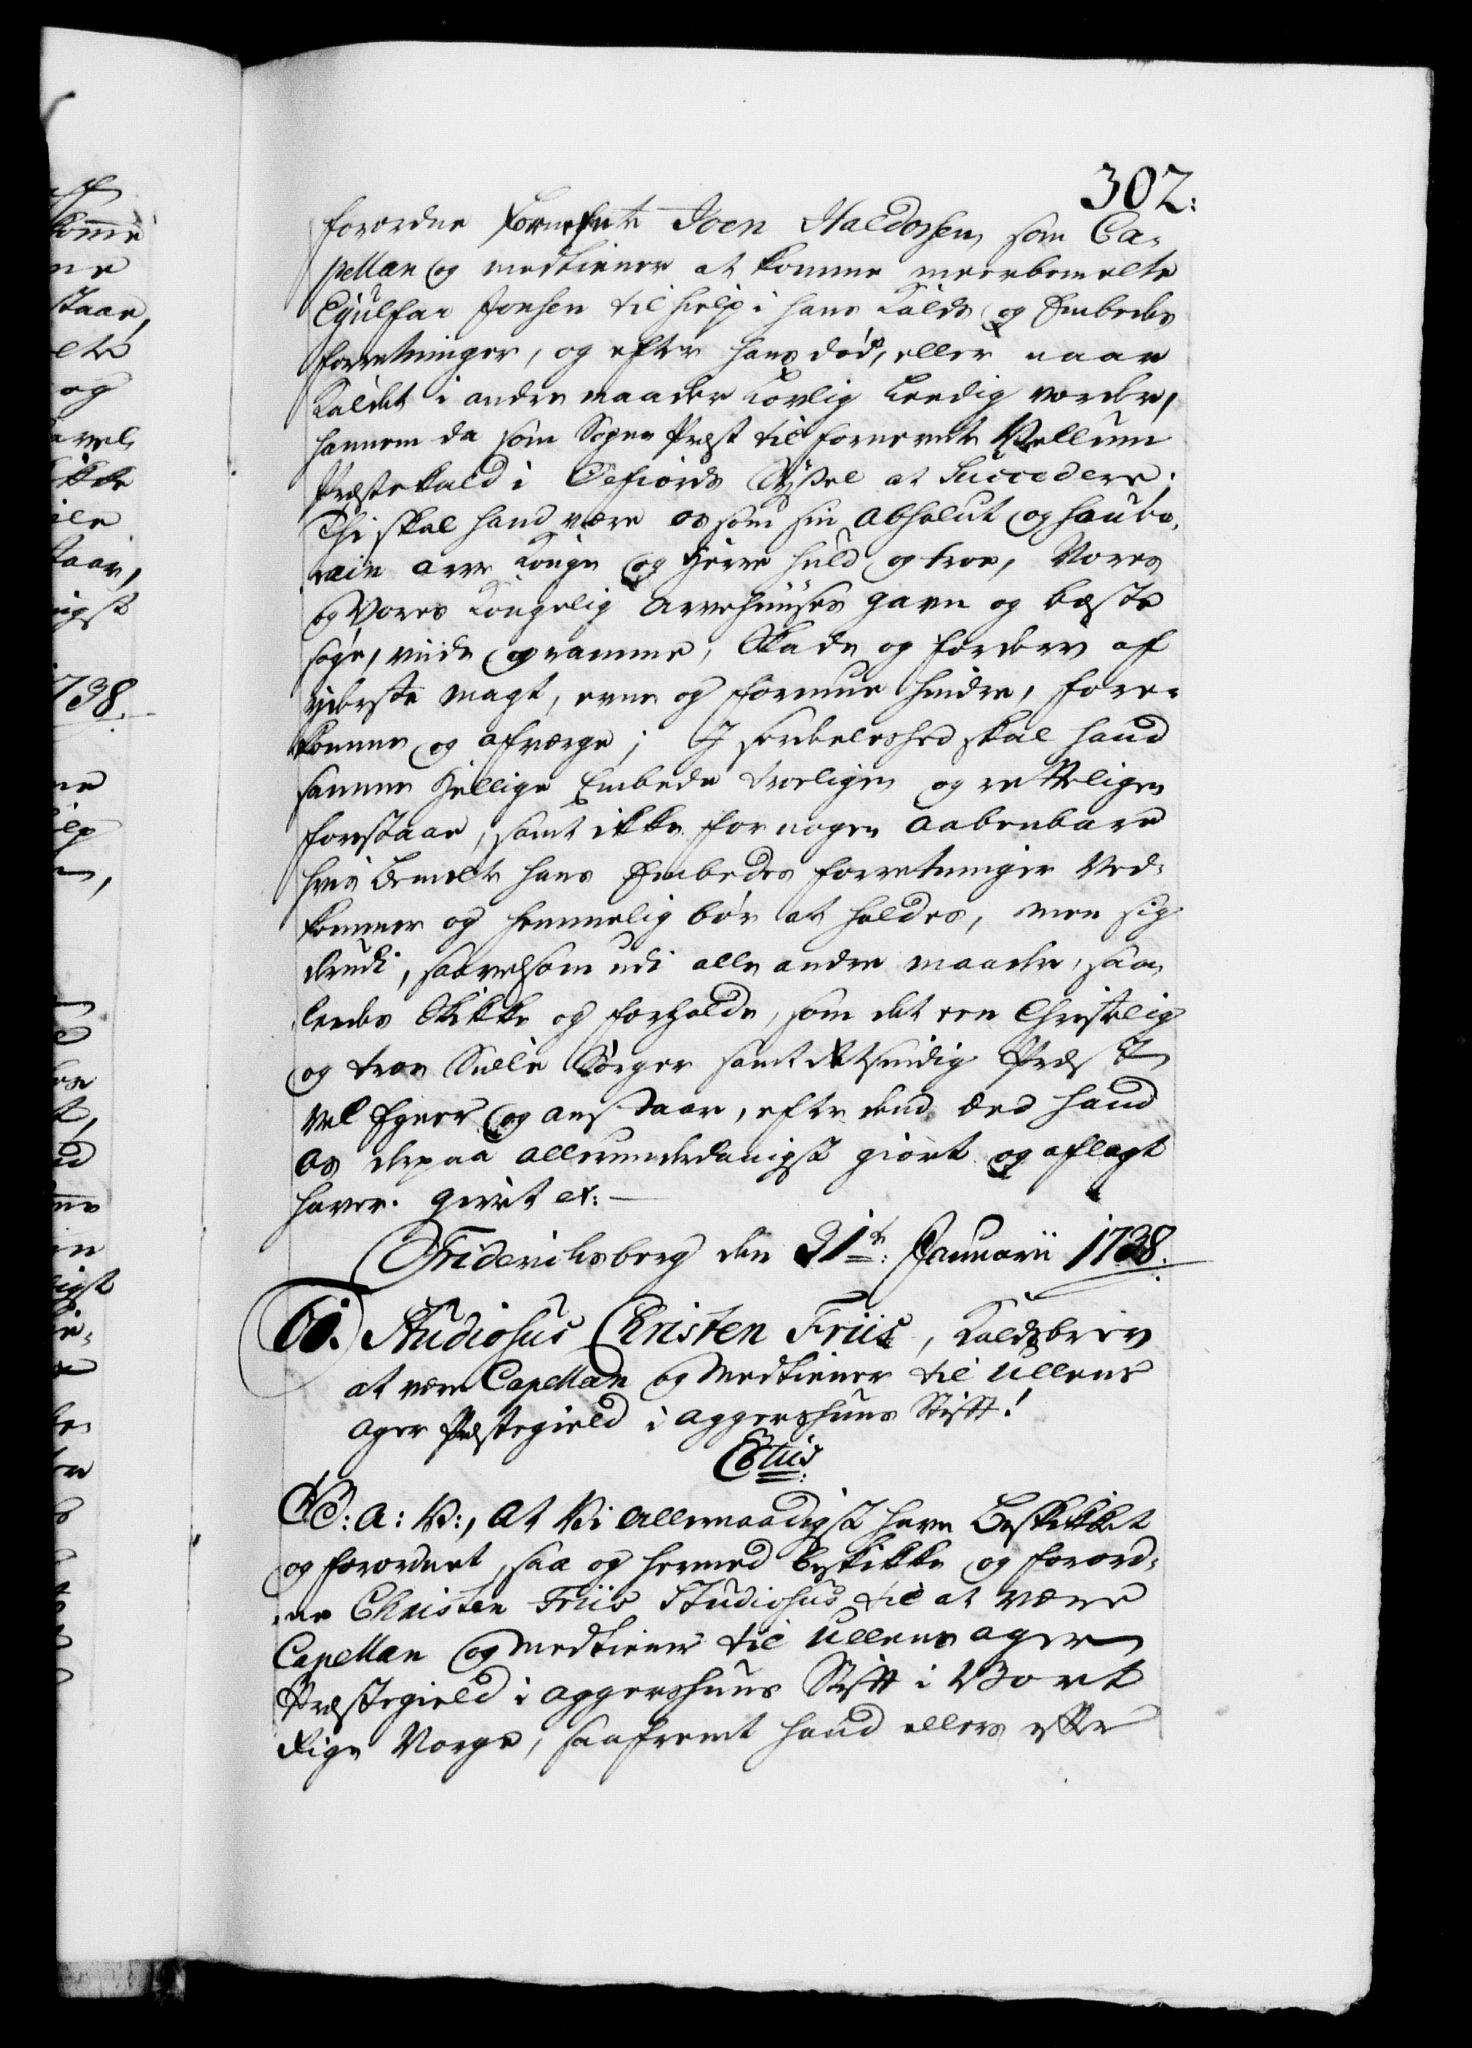 302:
forordne fornefnte Joen Haldorsen, som Ca-
pellan og medtiener at komme meerbemelte
Eyulfar Jonsen til hielp i hans Kalds og Embeds
forretninger, og efter hans død, eller naar
Kaldet i andre maader lovlig leedig vorder,
hannem da som Sogne Præst til fornevnte Vellum
Præstekald i Oefiords Sÿssel at Succedere;
Thi skal hand være os som sin absolut og souve-
rain arve Konge og Herre huld og troe, Vores
og Vores Kongelig Arvehuuses gavn og beste
søge, viide og ramme, Skade og forderv af
yderste magt, evne og formue hindre, fore-
komme og afværge; I serdeleshed skal hand
samme hellige Embede troeligen og retteligen
forestaae, samt ikke for nogen aabenbare
hvis bemelte hans Embedes forretninger ved-
kommer og hemmelig bør at holdes, men sig
derudi, saavelsom udi alle andre maader, saa-
ledes skikke og forholde, som det een Christelig
og troe Siæle Sørger samt retsindig Præst
vel egner og anstaar, efter dend Eed hand
os derpaa allerunderdanigst giort og aflagt
haver. Givet et:
Friderichsberg den 31te: Januarii 1738.
60. Studiosus Christen Friis, Kaldsbrev
at være Capellan og Medtiener til Ullens
ager Præstegield i Aggershuus Stift!
C6tus
V: G: A: V:, at Vi allernaadigst have beskikket
og forordnet, saa og hermed beskikke og forord-
ne Christen Friis Studiosus til at være
Capellan og Medtiener til Ullens ager
Præstegield i Aggershuus Stift i Vort
Rige Norge, saafremt hand ellers efter